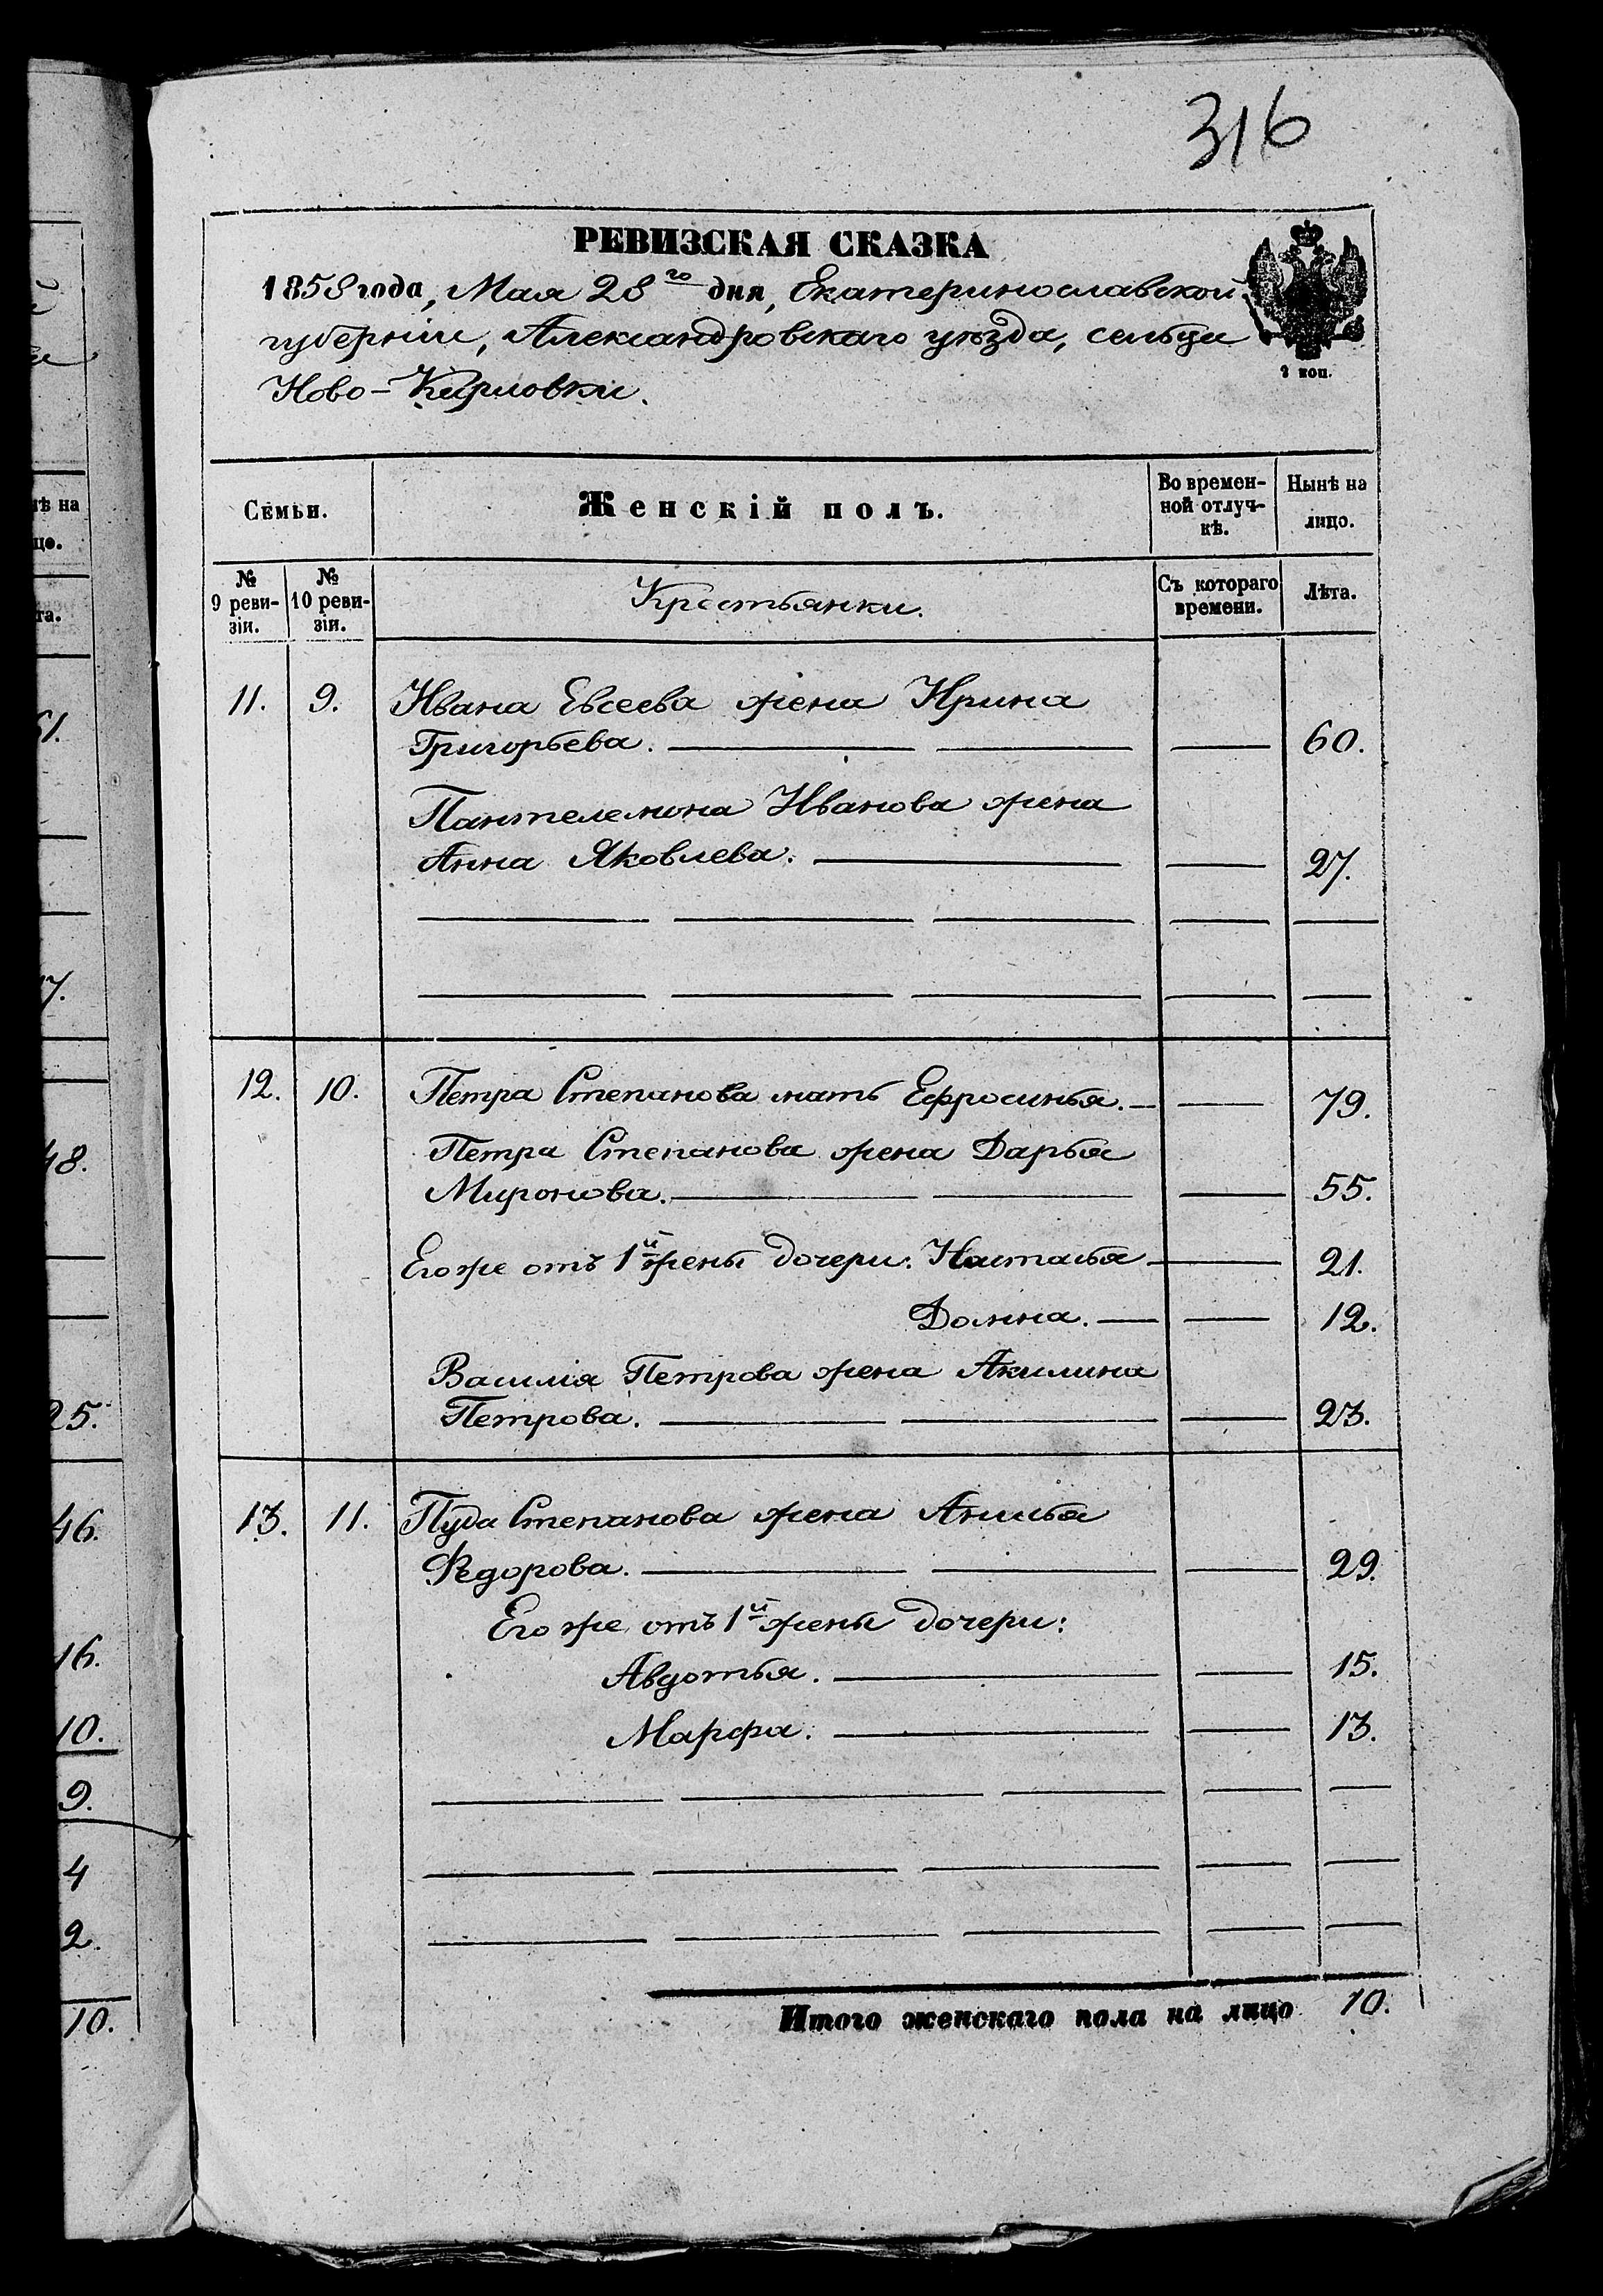 316
РЕВИЗСКАЯ СКАЗКА
1858 года, Мая 28го дня, Екатеринославской
губерніи, Александровскаго уѣзда, сельца
Ново-Карловки.
2 коп.
Семьи.
Женскій полъ.
Во времен-
ной отлуч-
кѣ.
Нынѣ на
лицо.
№
9 реви-
зіи.
№
10 реви-
зіи.
Крестьянки.
Съ котораго
времени.
Лѣта.
11. 9. Ивана Евсеева жена Ирина
Григорьева. 60.
Пантелемона Иванова жена
Анна Яковлева. 27.
12. 10. Петра Степанова мать Ефросинья. 79.
Петра Степанова жена Дарья
Миронова. 55.
Его же отъ 1й жены дочери: Настасья 21.
Домна. 12.
Василія Петрова жена Акилина
Петрова. 23.
13. 11. Пуда Степанова жена Анисья
Федорова. 29.
Его же отъ 1й жены дочери:
Авдотья. 15.
Марфа. 13.
Итого женскаго пола на лицо 10.
нѣ на
цо.
та.
51.
7.
48.
25.
46.
16.
10.
9.
4
2.
10.